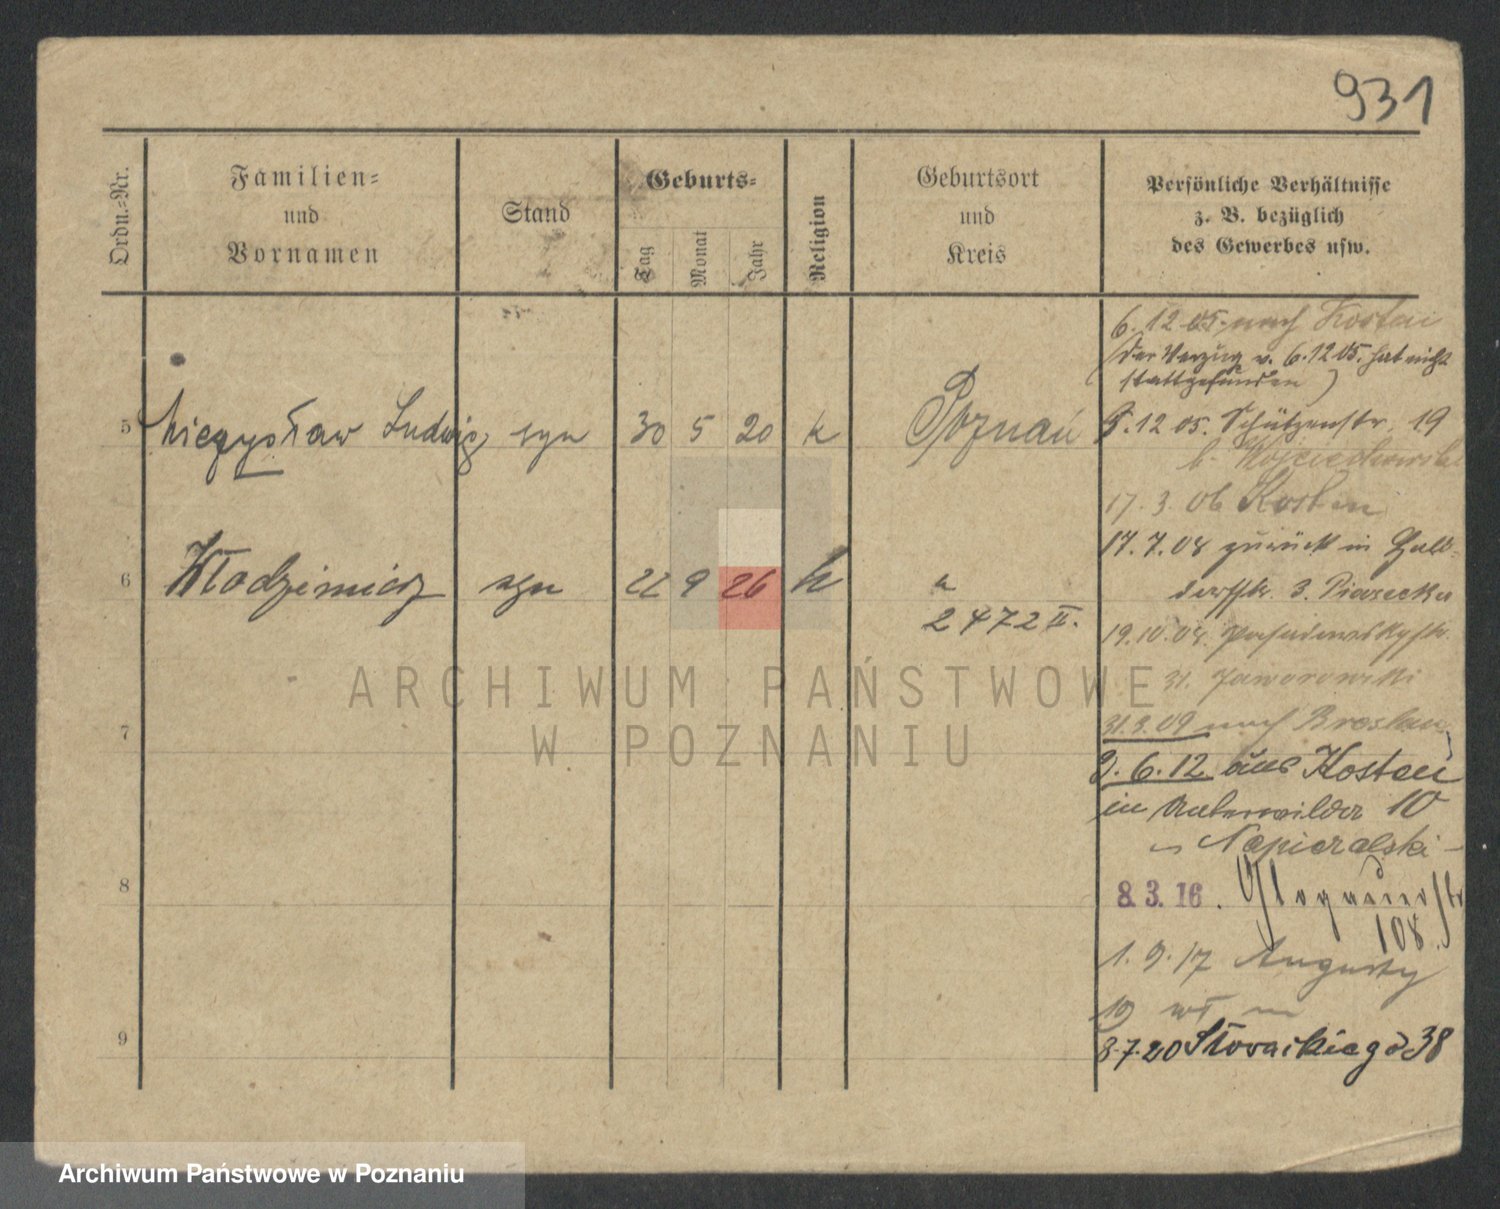 931
Ordn.=Nr.
Familien=
und
Vornamen
Stand
Geburts=
Tag
Monat
Jahr
Religion
Geburtsort
und
Kreis
Persönliche Verhältnisse
z. B. bezüglich
des Gewerbes usw.
5 Mieczysław Ludwig syn 30 5 20 k Poznań
6 Włodzimierz syn 22 9 26 k "
2472 II.
7
8
9
6. 12 05. nach Kosten
(Der Verzug v. 6. 12 05. hat nicht
stattgefunden)
5. 12 05. Schützenstr. 19
b. Wojciechowski
17. 3. 06 Kosten
17. 7. 08 zurück in
3. Piasecka
19. 10. 08.
31. Jaworowski
31. 3. 09 nach Breslau
2. 6. 12 aus Kosten
in 10
Napieralski
8. 3. 16. Glogauerstr
108.
1. 9. 17 Augusty
10
8. 7. 20 Słowackiego 38
ARCHIWUM PAŃSTWOWE
W POZNANIU
Archiwum Państwowe w Poznaniu